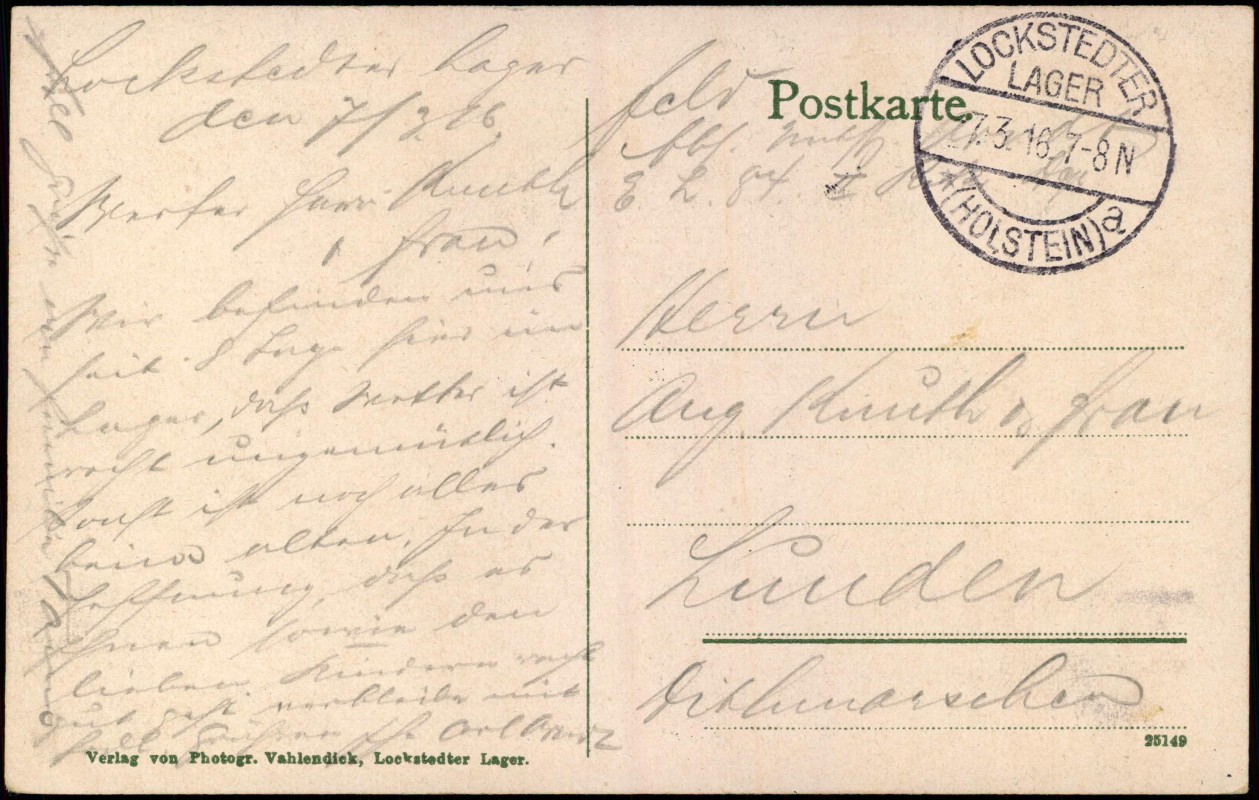 Lockstedter Lager
den 7/3 16.
Werter Herr Knuth
u. Frau!
Wir befinden uns
seit 8 Tage hier im
Lager, daß Wetter ist
recht ungemütlich.
sonst ist noch alles
beim alten. In der
Hoffnung, daß es
Ihnen sowie den
lieben Kindern recht
gut geht verbleibe mit
Grüßen Ihr
Postkarte.
LOCKSTEDTER
LAGER
7.3.16. 7-8 N
(HOLSTEIN) a
Feld
E. L. 84. II
Herrn
Aug Knuth u. Frau
Lunden
Dithmarschen
Verlag von Photogr. Vahlendick, Lockstedter Lager.
25149